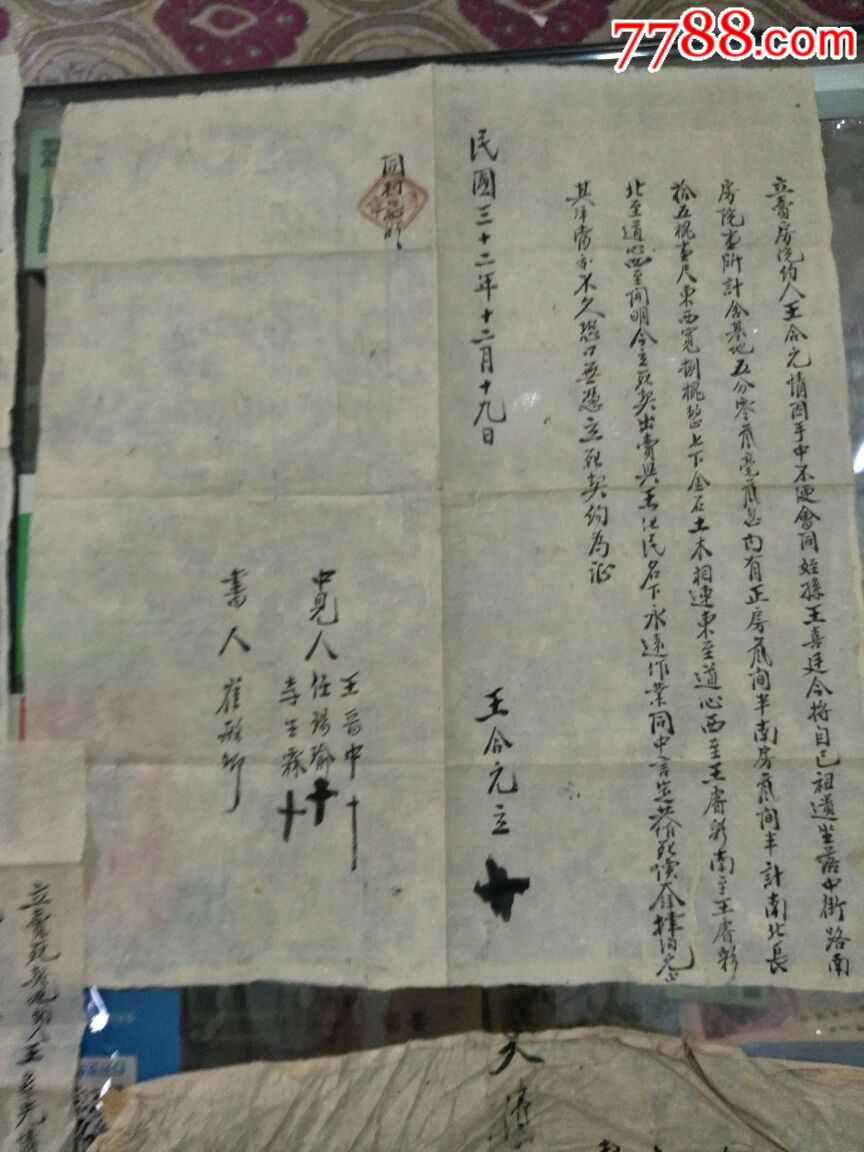 7788.com
立賣房院約人王合元情因手中不便會同姪孫王喜廷今將自己祖遺坐落中街路南
房院壹所計舍基地五分零貳毫貳忽内有正房貳间半南房貳间半計南北長
拾五槐壹尺東西寬捌槐整上下金石土木相連東至道心西至王睿彩南至王睿彩
北至道心四至開明今立死契出賣與王 民名下永遠作業同中言定共作死價大洋 伯元正
其洋當 不欠恐口無憑立死契約為证
王合元立 十
民國三十二年十二月十九日
同村
王晋中 十
中見人 任瑞瑜 十
李生霖 十
書人 崔 卿
立賣 房 約人王 元情
天